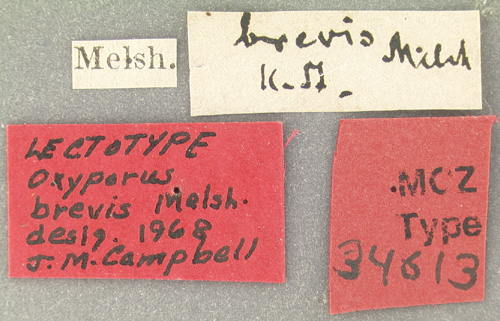 Melsh.
brevis Melsh
LECTOTYPE
Oxyporus
brevis Melsh.
desig. 1968
J.M. Campbell
.MCZ
Type
34613